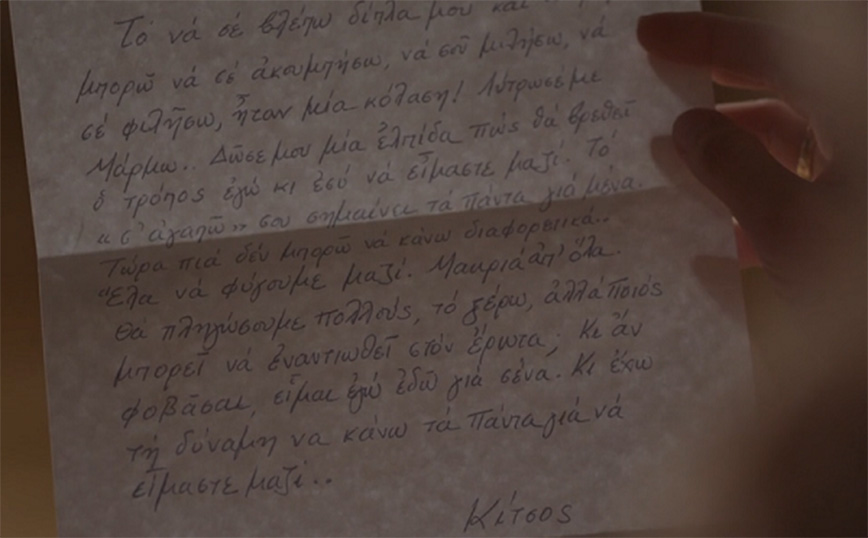 Τό νά σέ βλέπω δίπλα μου καί
μπορῶ νά σέ ἀκουμπήσω, νά σοῦ μιλήσω, νά
σέ φιλήσω, ἦταν μία κόλαση! Λύτρωσέ με
Μάρμω.. Δῶσε μου μία ἐλπίδα πώς θά βρεθεῖ
ὁ τρόπος ἐγώ κι ἐσύ νά εἴμαστε μαζί. Τό
«σ' ἀγαπῶ» σου σημαίνει τά πάντα γιά μένα.
Τώρα πιά δέν μπορῶ νά κάνω διαφορετικά..
Ἔλα νά φύγουμε μαζί. Μακριά ἀπ' ὅλα.
Θά πληγώσουμε πολλούς, τό ξέρω, ἀλλά ποιός
μπορεῖ νά ἐναντιωθεῖ στόν ἔρωτα; Κι ἄν
φοβᾶσαι, εἶμαι ἐγώ ἐδῶ γιά σένα. Κι ἔχω
τή δύναμη να κάνω τά πάντα γιά νά
εἴμαστε μαζί..
Κίτσος